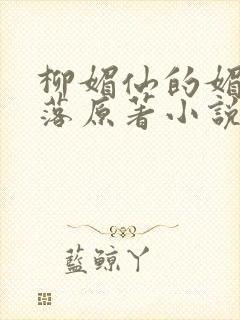 柳媚仙的媚
落原著小說
藍鯨丫